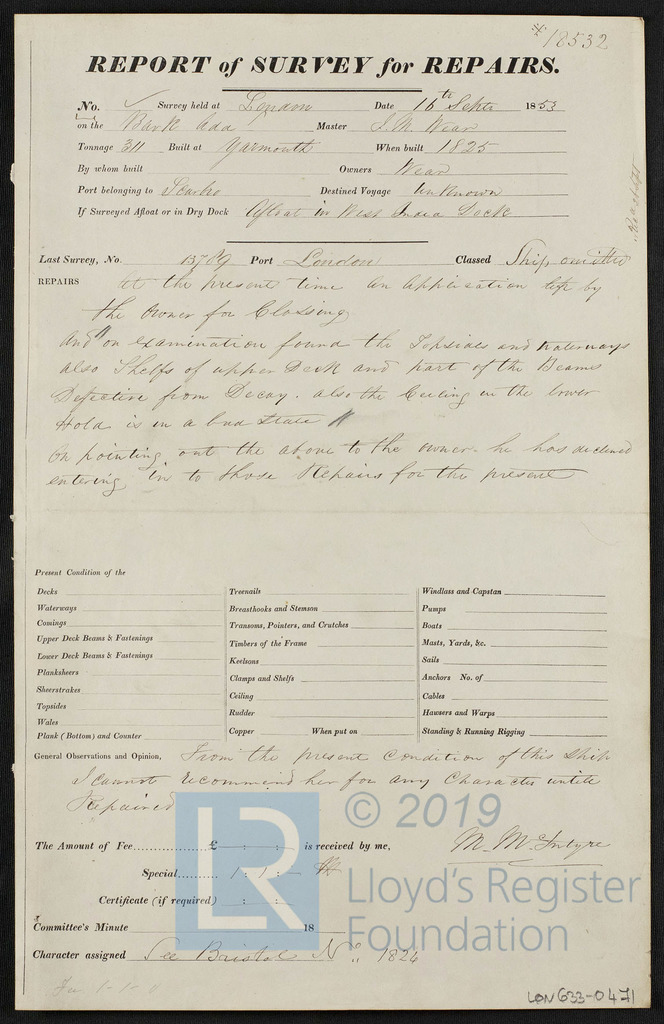 18532
REPORT of SURVEY for REPAIRS.
No. Survey held at London Date 16th Septr 1853
on the Bark Ada Master J. N. Wear
Tonnage 311 Built at Yarmouth When built 1825
By whom built Owners Wear
Port belonging to Scarbro Destined Voyage Unknown
If Surveyed Afloat or in Dry Dock Afloat in West India Dock
Last Survey, No. 13789 Port London Classed Ship omitted
REPAIRS At the present time an application left by
the Owner for Classing
And on examination found the Topsides and waterways
also Shelfs of upper Deck and part of the Beams
Defective from Decay. also the Ceiling in the lower
Hold is in a bad State
On pointing out the above to the owner. he has declined
entering in to those Repairs for the present
Present Condition of the
Decks
Waterways
Comings
Upper Deck Beams & Fastenings
Lower Deck Beams & Fastenings
Planksheers
Sheerstrakes
Topsides
Wales
Plank (Bottom) and Counter
Treenails
Breasthooks and Stemson
Transoms, Pointers, and Crutches
Timbers of the Frame
Keelsons
Clamps and Shelfs
Ceiling
Rudder
Copper When put on
Windlass and Capstan
Pumps
Boats
Masts, Yards, &c.
Sails
Anchors No. of
Cables
Hawsers and Warps
Standing & Running Rigging
General Observations and Opinion, From the present Condition of this Ship
I cannot recommend her for any Character untill
Repaired
The Amount of Fee £ : : is received by me, M. McIntyre
Special 1 : 1 : -
Certificate (if required) : :
Committee's Minute 18
Character assigned See Bristol No. 1824
Fee 1-1-0
LON633-0471
LR
© 2019
Lloyd's Register
Foundation